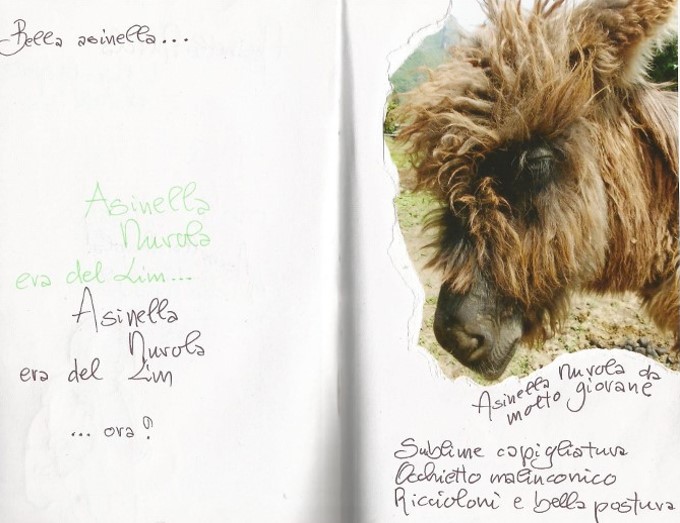 Bella asinella...
Asinella
Nuvola
era del Lim...
Asinella
Nuvola
era del Lim
... ora?
Asinella Nuvola da
molto giovane
Sublime capigliatura
Occhietto malinconico
Riccioloni e bella postura